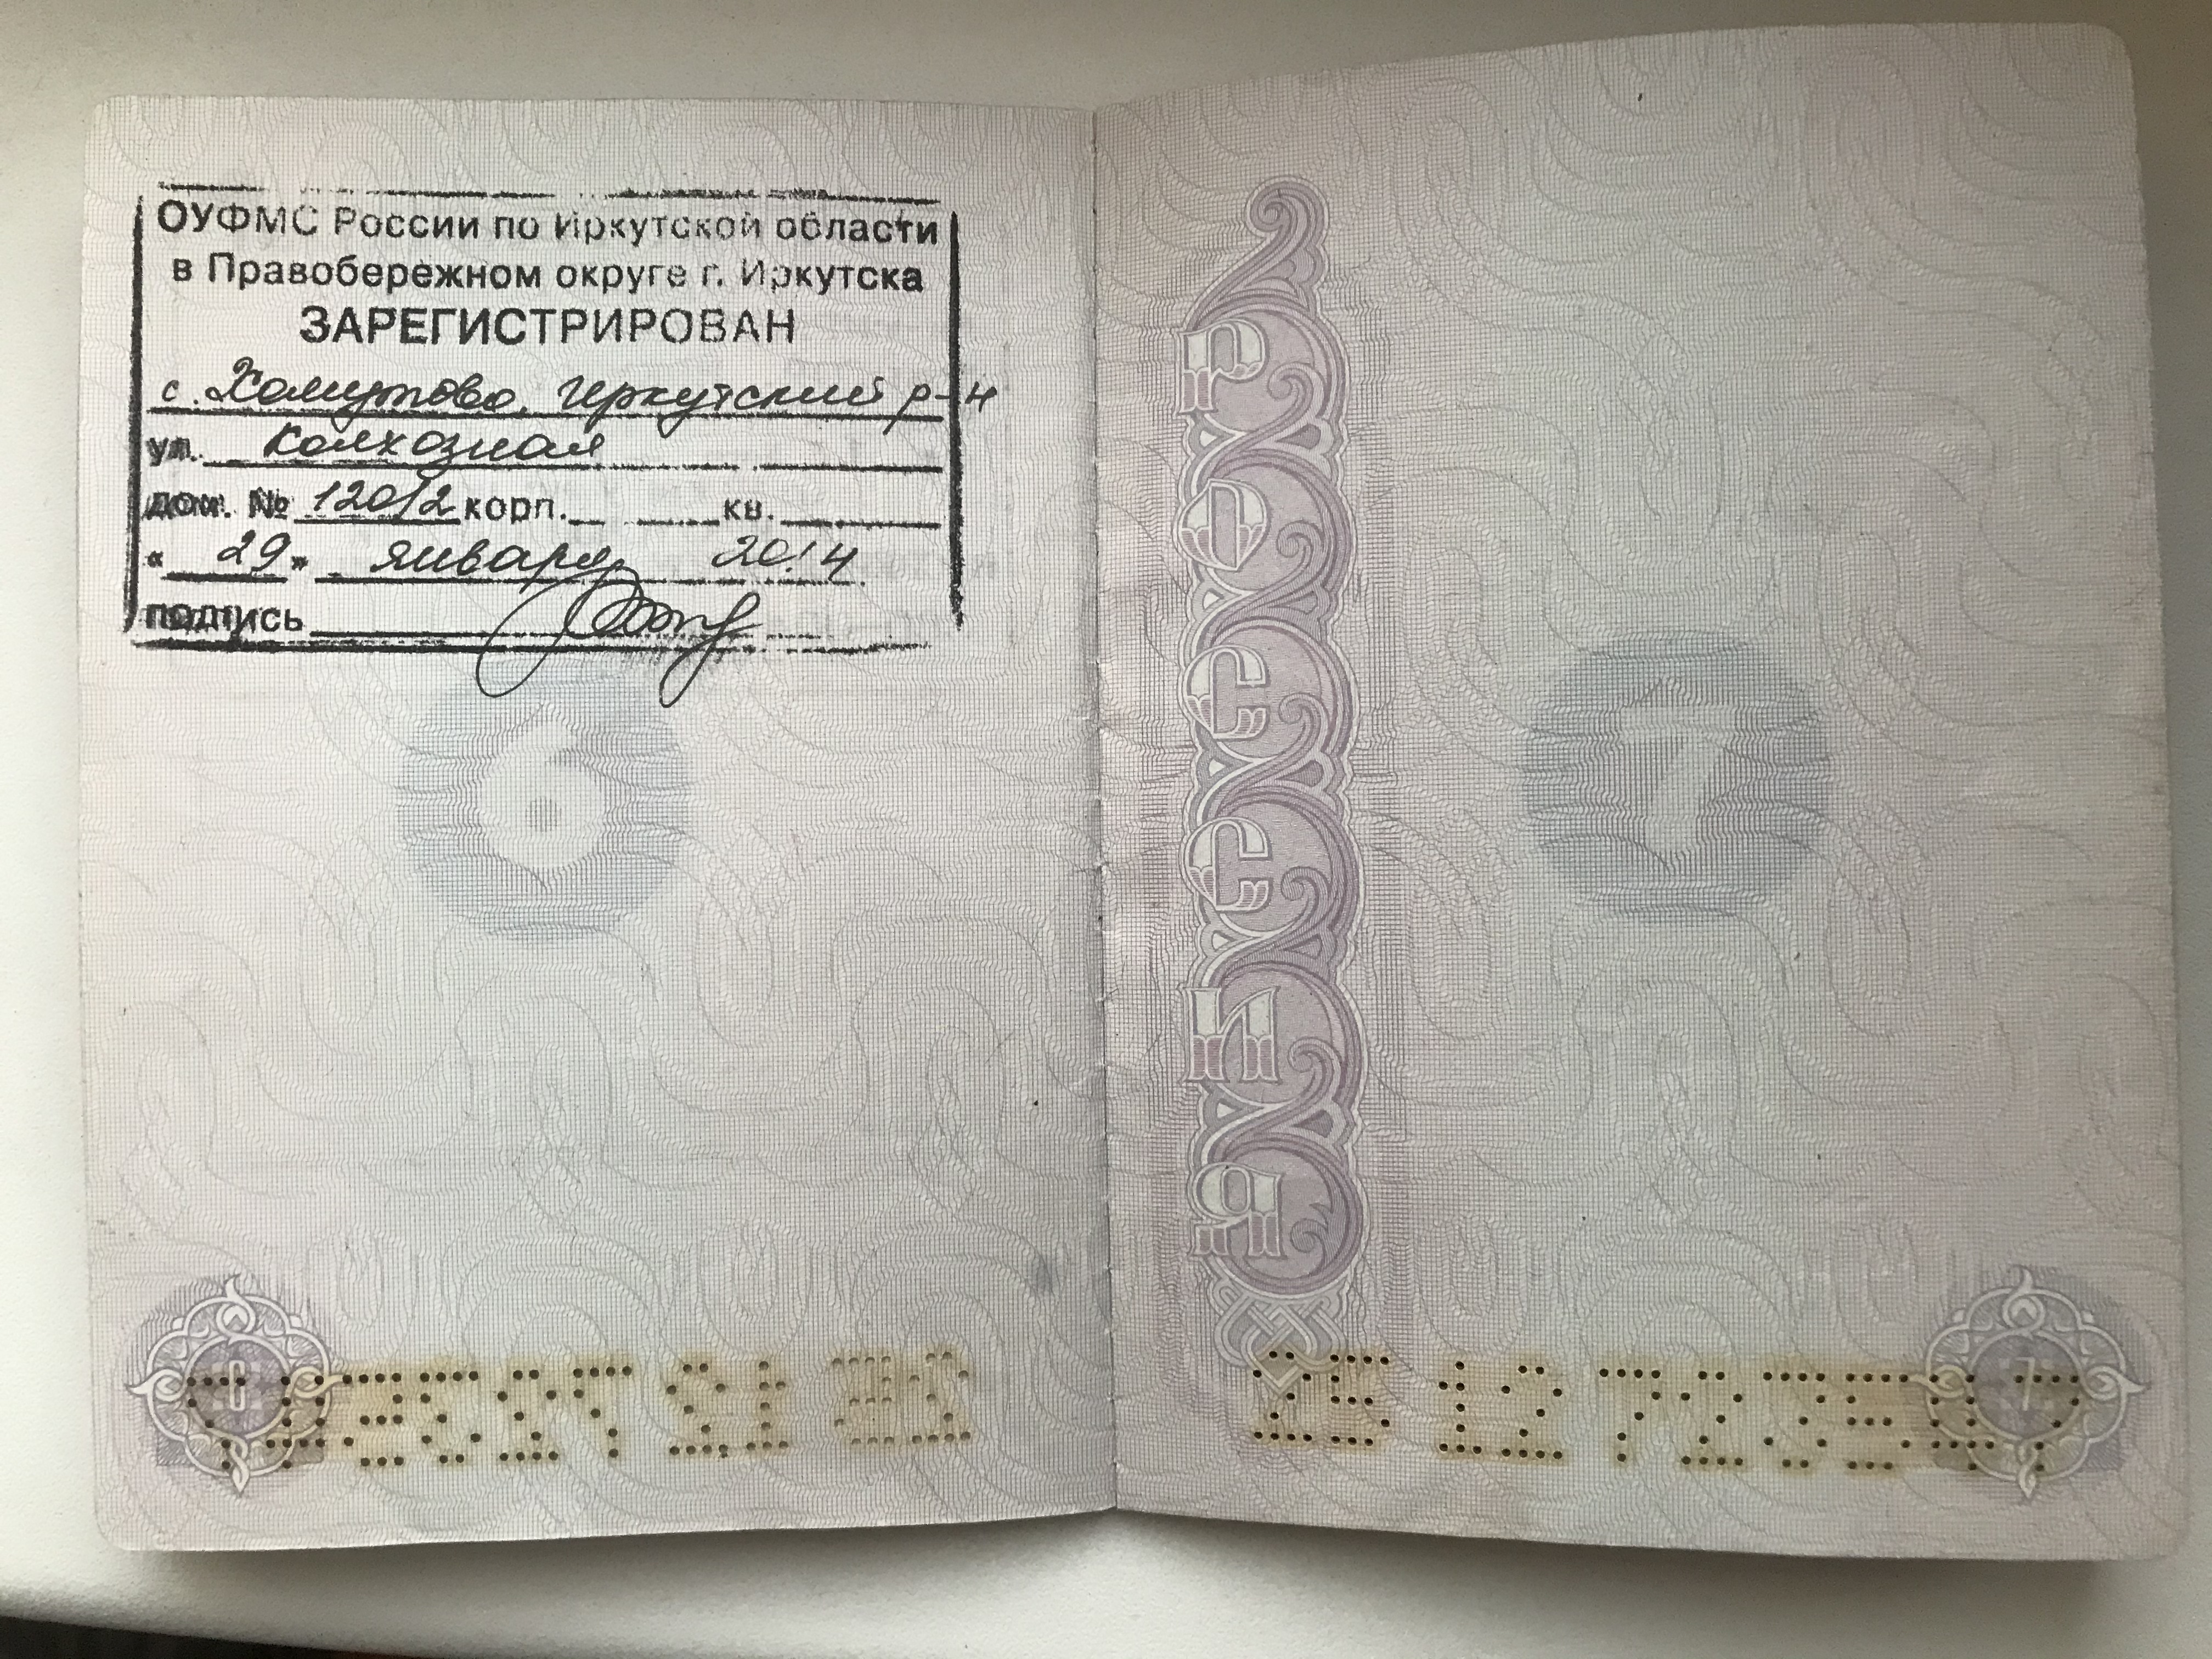 ОУФМС России по Иркутской области
в Правобережном округе г. Иркутска
ЗАРЕГИСТРИРОВАН
с. Хомутово, Иркутский р-н
ул. Колхозная
дом. № 120/2 корп. кв.
« 29 » января 2014
подпись
6
6
РОССИЯ
7
7
25 12 703547